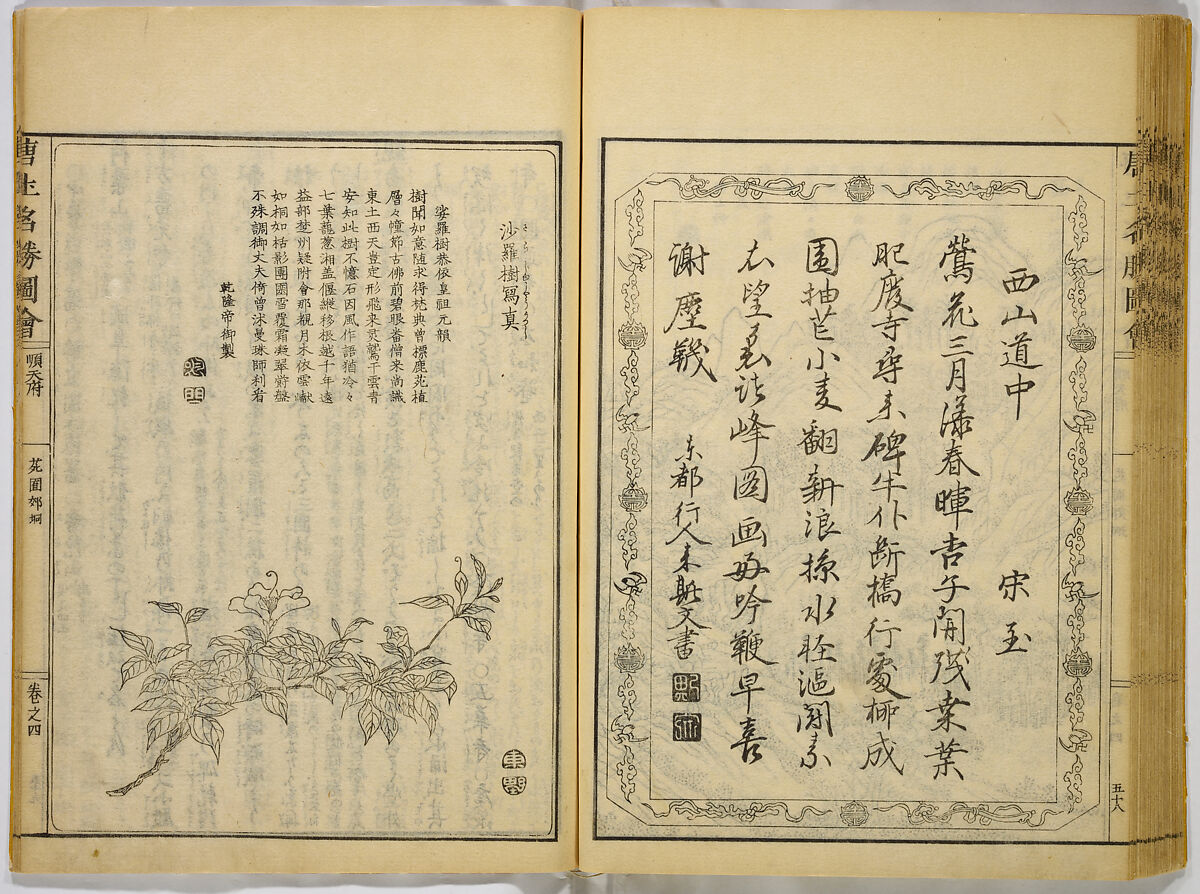 西山道中　宋至
鶯花三月漾春暉杏子開殘桑葉
肥廢寺尋来碑半仆断橋行處柳成
圍抽芒小麦翻新浪掠水輕漚閙素
衣望裏诸峰图画好吟鞭早喜
謝塵鞿
东都行人 文書
五十八
沙羅樹寫真
娑羅樹恭依皇祖元韻
樹聞如意随求得梵典曾標鹿苑植
層々幢節古佛前碧眼番僧来尚識
東土西天豈定形飛来灵鷲干雲青
安知此樹不憶石因風作語猶冷々
七葉蘢葱湘盖偃縱移根越千年遠
益部楚州疑附會那観月未依雲巘
如桐如栝影團團雪覆霜凝翠欝盤
不殊調御丈夫倚曾沐曼珠師利看
乾隆帝御製
唐土名勝圖會
順天府
苑囿郊坰
巻之四